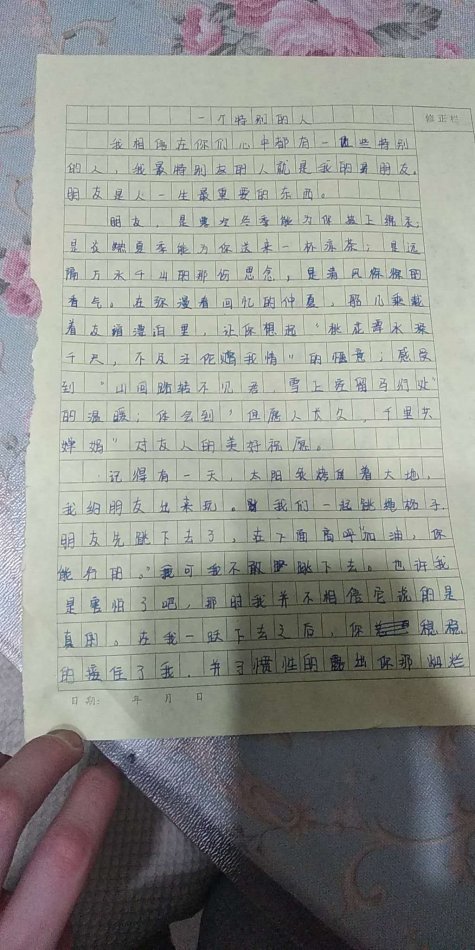 一个特别的人
修正栏
我相信在你们心中都有一些特别
的人，我最特别的人就是我的朋友。
朋友是人一生最重要的东西。
朋友，是寒冷冬季能为你披上绵衣；
是炎夏季能为你送来一杯凉茶；是远
隔万水千山的那份思念，是清风徐徐的
香气。在弥漫着回忆的仲夏，那儿乘载
着友谊漂泊里，让你想起“桃花潭水深
千尺，不及汪伦赠我情”的惬意；感受
到“山回路转不见君，雪上空留马行处”
的温暖；体会到“但愿人长久，千里共
婵娟”对友人的美好祝愿。
记得有一天，太阳炙烤着大地，
我约朋友出来玩。我们一起跳绳梯子，
朋友先跳下去了，在下面高呼“加油，你
能行的。”可我不敢跳下去。也许我
是害怕了吧，那时我并不相信它说的是
真的。在我一跃下去之后，你稳稳
的接住了我，并了惯性的露出你那灿烂
日期： 年 月 日